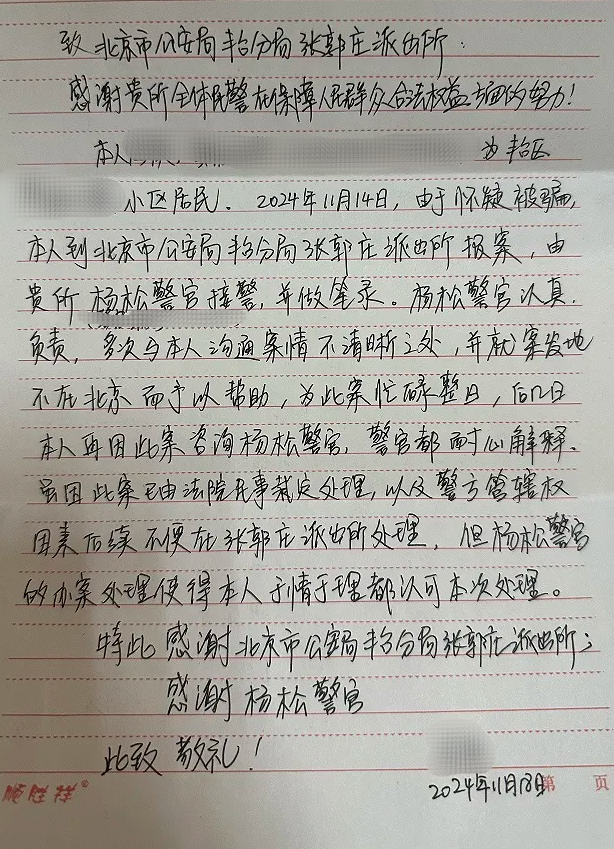 致 北京市公安局丰台分局张郭庄派出所:
感谢贵所全体民警在保障人民群众合法权益方面的努力!
本人 为丰台区
小区居民。2024年11月14日,由于怀疑被骗,
本人到北京市公安局丰台分局张郭庄派出所报案,由
贵所杨松警官接警,并做笔录。杨松警官认真
负责,多次与本人沟通案情不清晰之处,并就案发地
不在北京而予以帮助,为此案忙碌整日,后几日
本人再因此案咨询杨松警官,警官都耐心解释。
虽因此案已由法院民事裁定处理,以及警方管辖权
因素后续不便在张郭庄派出所处理,但杨松警官
的办案处理使得本人于情于理都认可本次处理。
特此感谢北京市公安局丰台分局张郭庄派出所;
感谢杨松警官
此致 敬礼!
2024年11月18日
顺胜祥® 第 页